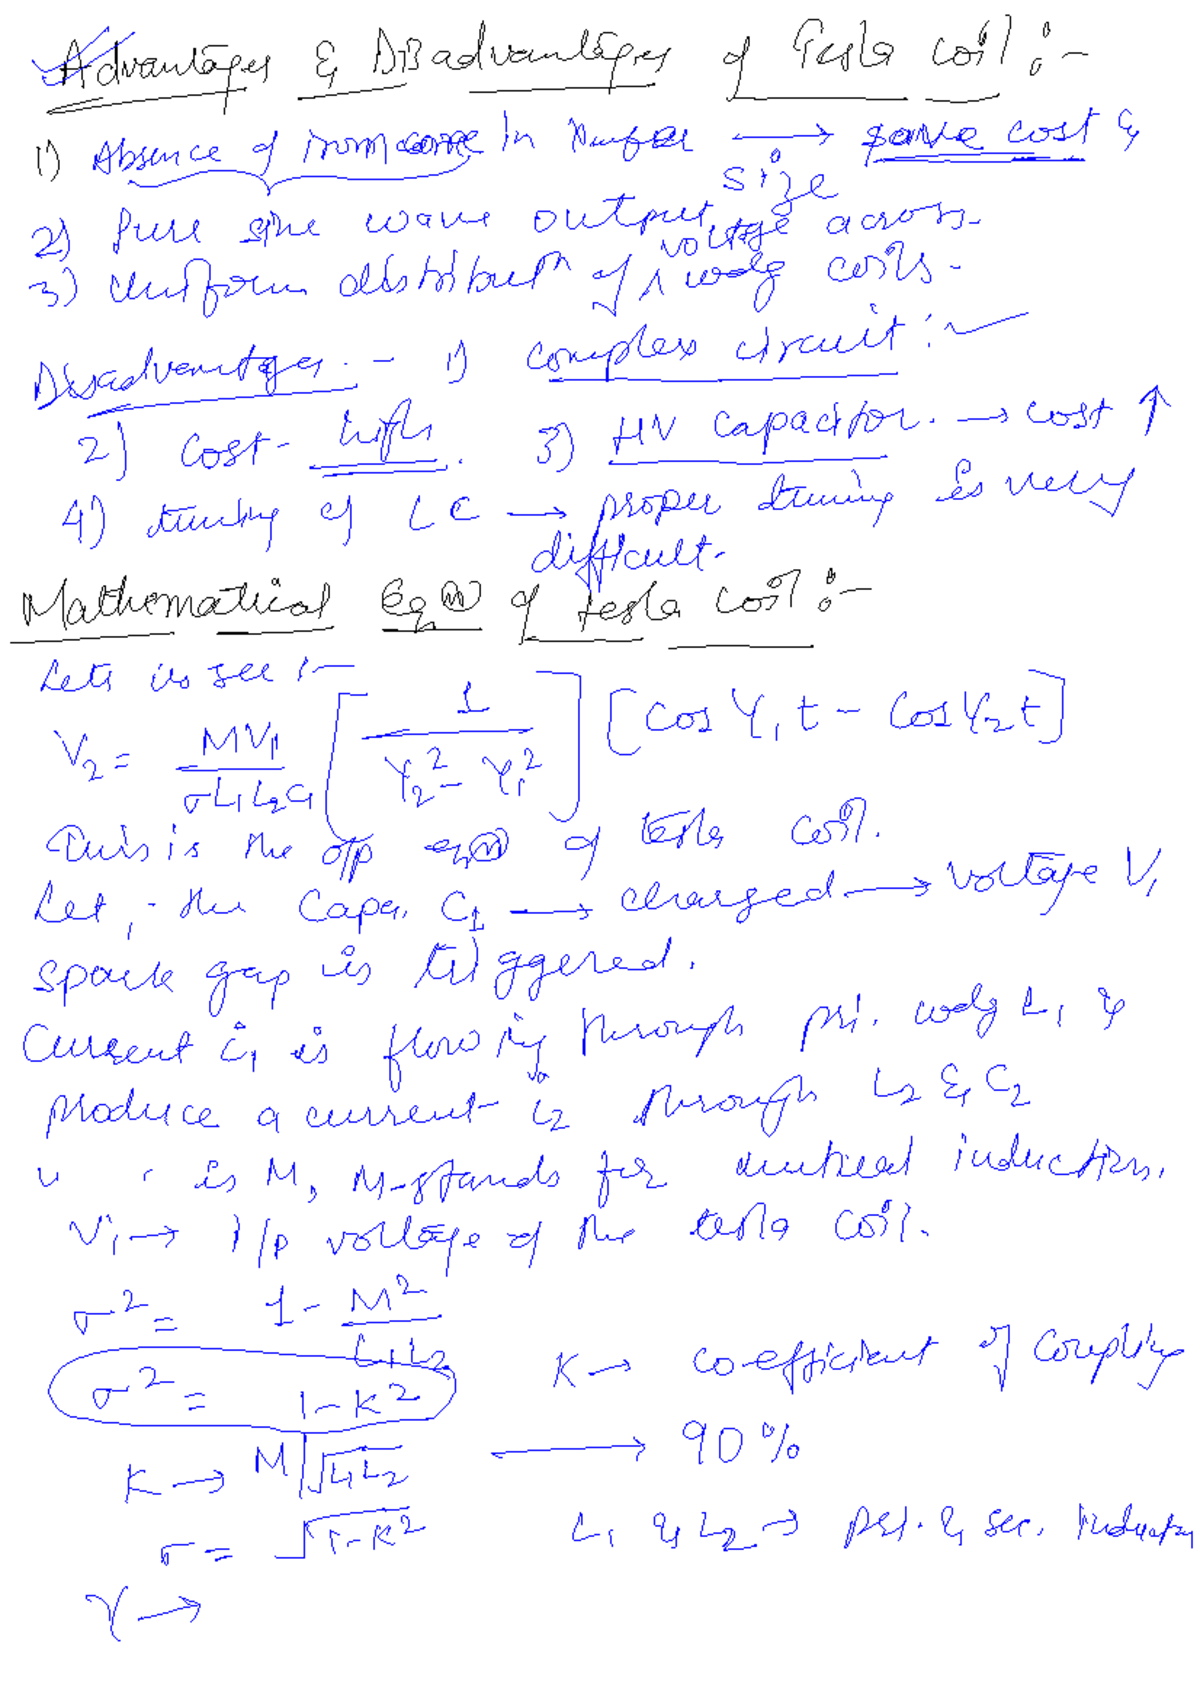 Advantages & Disadvantages of Tesla coil :-
1) Absence of iron core in → save cost & size
2) Pure sine wave output
3) Uniform distributn of voltage across wdg coils.
Disadvantages. - 1) complex circuit :-
2) cost - high. 3) HV capacitor. → cost ↑
4) tuning of LC → proper tuning is very difficult.
Mathematical Eqn of tesla coil :-
Lets us see :-
V2 = MV1 / σL1L2C1 [ 1 / γ2² - γ1² ] [Cos γ1t - Cos γ2t]
This is the o/p eqn of tesla coil.
Let, - the Capa. C1 → charged → voltage V1
spark gap is triggered.
Current i1 is flowing through pri. wdg L1 &
produce a current i2 through L2 & C2
is M, M-stands for mutual induction.
V1 → i/p voltage of the tesla coil.
σ² = 1 - M² / L1L2
σ² = 1-K² K → co-efficient of coupling
K → M/√L1L2 → 90%
σ = √1-K² L1 & L2 → pri. & sec.
γ →